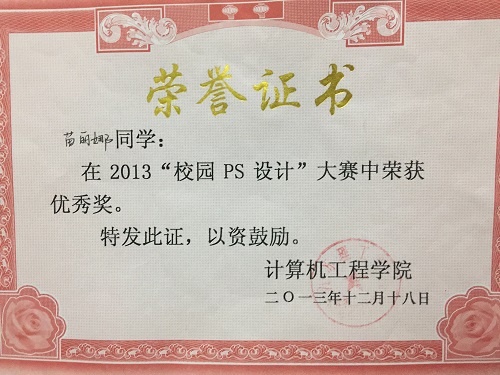 荣誉证书
苗丽娜同学：
在 2013“校园 PS 设计”大赛中荣获
优秀奖。
特发此证，以资鼓励。
计算机工程学院
二〇一三年十二月十八日